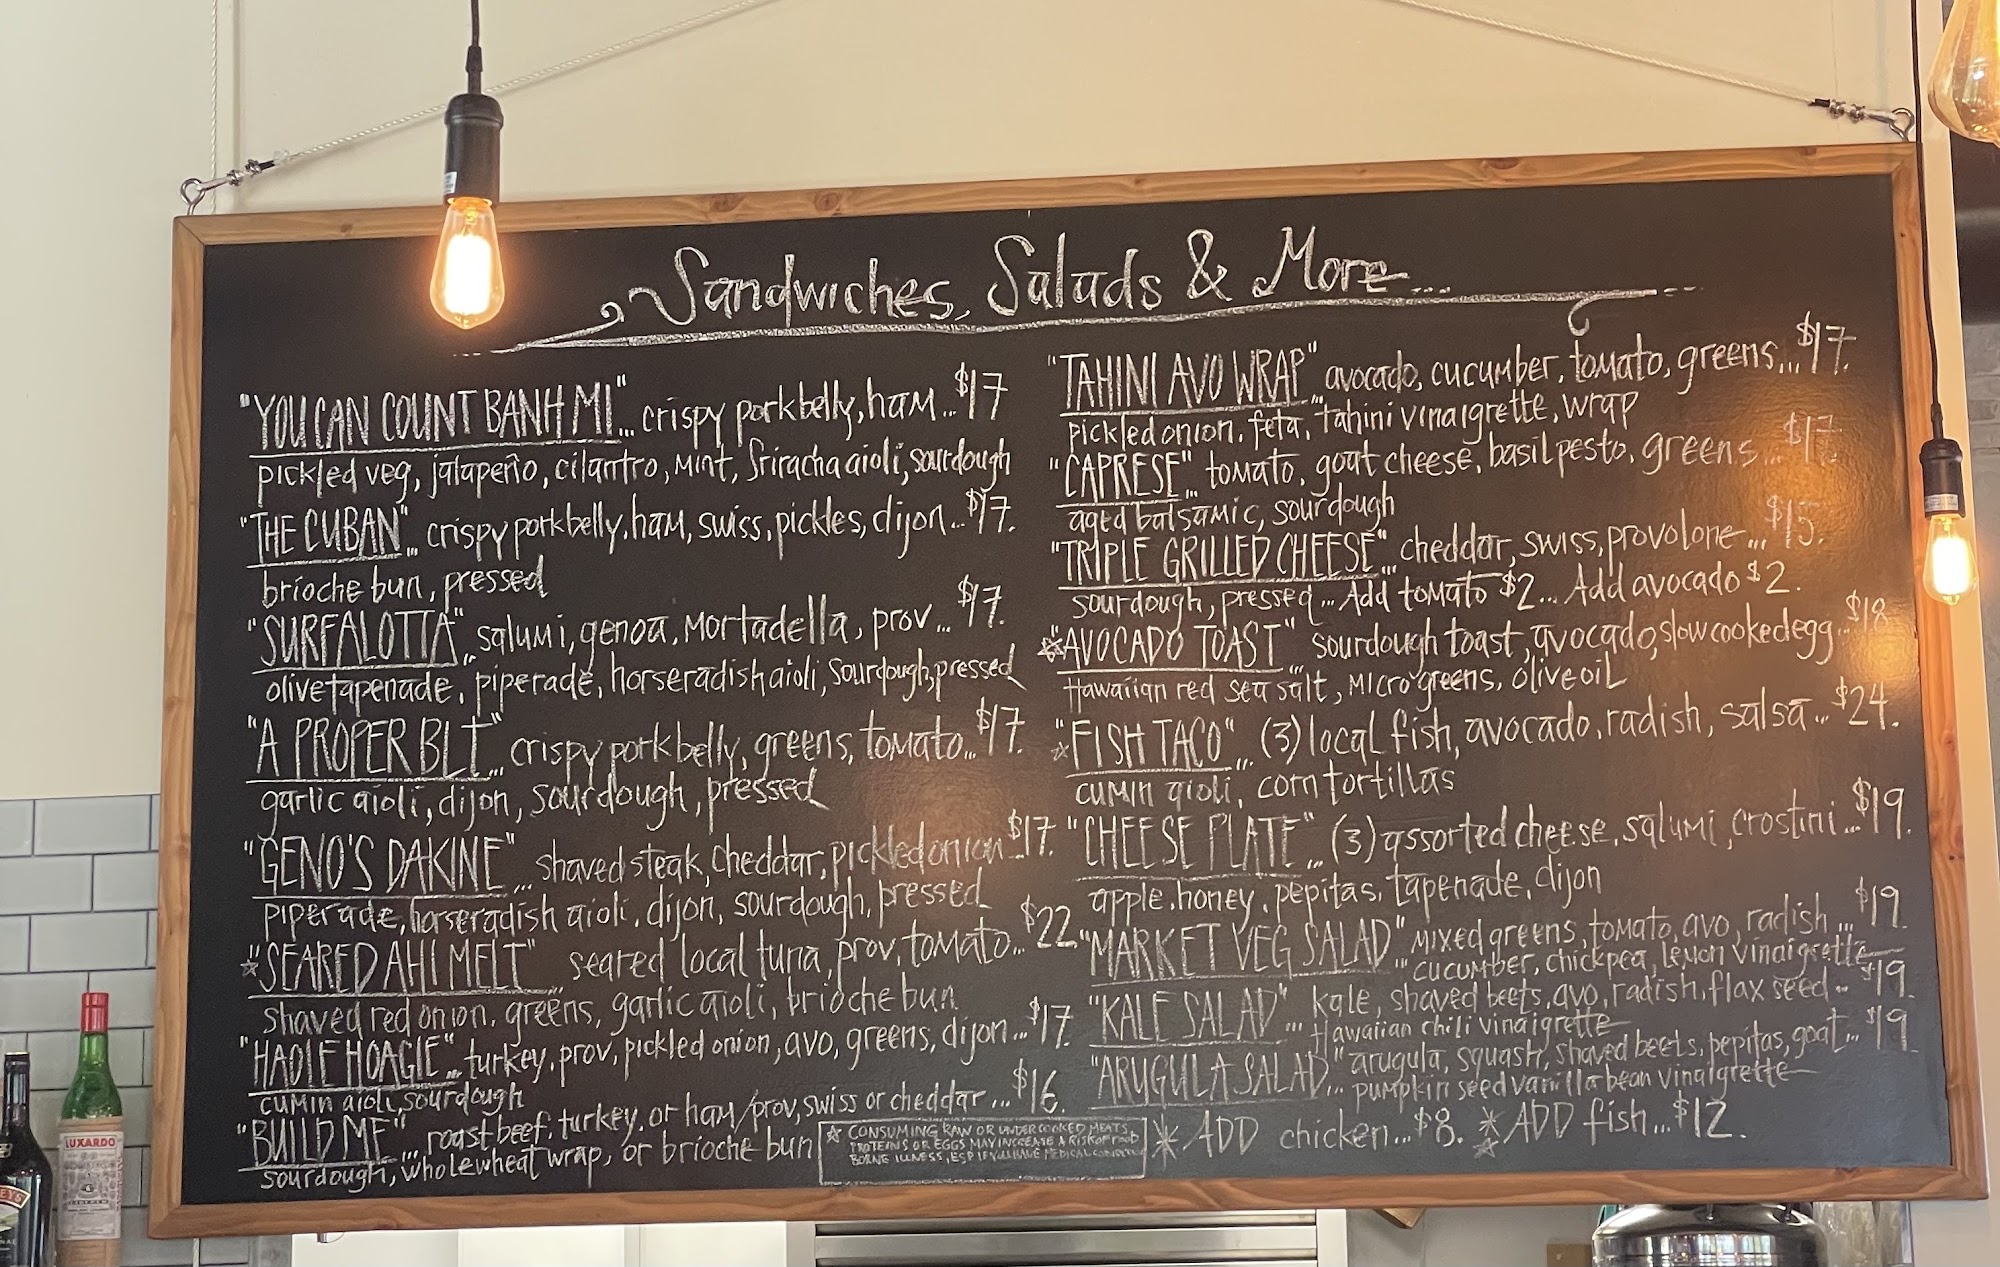 Sandwiches, Salads & More...
"YOU CAN COUNT BANH MI"... crispy pork belly, ham...$17
pickled veg, jalapeño, cilantro, mint, Sriracha aioli, sourdough
"THE CUBAN"... crispy pork belly, ham, swiss, pickles, dijon...$17.
brioche bun, pressed
"SURFALOTTA"... salumi, genoa, mortadella, prov...$17.
olive tapenade, piperade, horseradish aioli, sourdough, pressed
"A PROPER BLT"... crispy pork belly, greens, tomato...$17.
garlic aioli, dijon, sourdough, pressed
"GENO'S DAKINE"... shaved steak, cheddar, pickled onion...$17.
piperade, horseradish aioli, dijon, sourdough, pressed
"SEARED AHI MELT"... seared local tuna, prov, tomato...$22.
shaved red onion, greens, garlic aioli, brioche bun
"HAOLE HOAGIE"... turkey, prov, pickled onion, avo, greens, dijon...$17.
cumin aioli, sourdough
"BUILD ME"... roast beef, turkey, or ham/prov, swiss or cheddar...$16.
sourdough, whole wheat wrap, or brioche bun
CONSUMING RAW OR UNDERCOOKED MEATS,
PROTEINS OR EGGS MAY INCREASE A RISK OF FOOD
BORNE ILLNESS, ESP IF YOU HAVE MEDICAL CONDITIONS
"TAHINI AVO WRAP"... avocado, cucumber, tomato, greens...$17.
pickled onion, feta, tahini vinaigrette, wrap
"CAPRESE"... tomato, goat cheese, basil pesto, greens...$17.
aged balsamic, sourdough
"TRIPLE GRILLED CHEESE"... cheddar, swiss, provolone...$15.
sourdough, pressed... Add tomato $2... Add avocado $2.
"AVOCADO TOAST"... sourdough toast, avocado, slow cooked egg...$18
Hawaiian red sea salt, micro greens, olive oil
"FISH TACO"... (3) local fish, avocado, radish, salsa...$24.
cumin aioli, corn tortillas
"CHEESE PLATE"... (3) assorted cheese, salumi, crostini...$19.
apple, honey, pepitas, tapenade, dijon
"MARKET VEG SALAD"... mixed greens, tomato, avo, radish...$19.
cucumber, chickpea, lemon vinaigrette
"KALE SALAD"... kale, shaved beets, avo, radish, flax seed...$19.
Hawaiian chili vinaigrette
"ARUGULA SALAD"... arugula, squash, shaved beets, pepitas, goat...$19.
pumpkin seed vanilla bean vinaigrette
ADD chicken...$8. ADD fish...$12.
LUXARDO